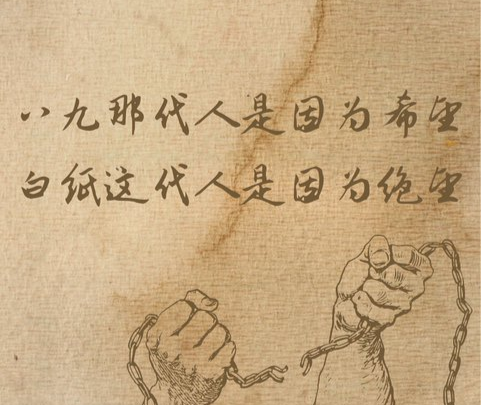 八九那代人是因为希望
白纸这代人是因为绝望